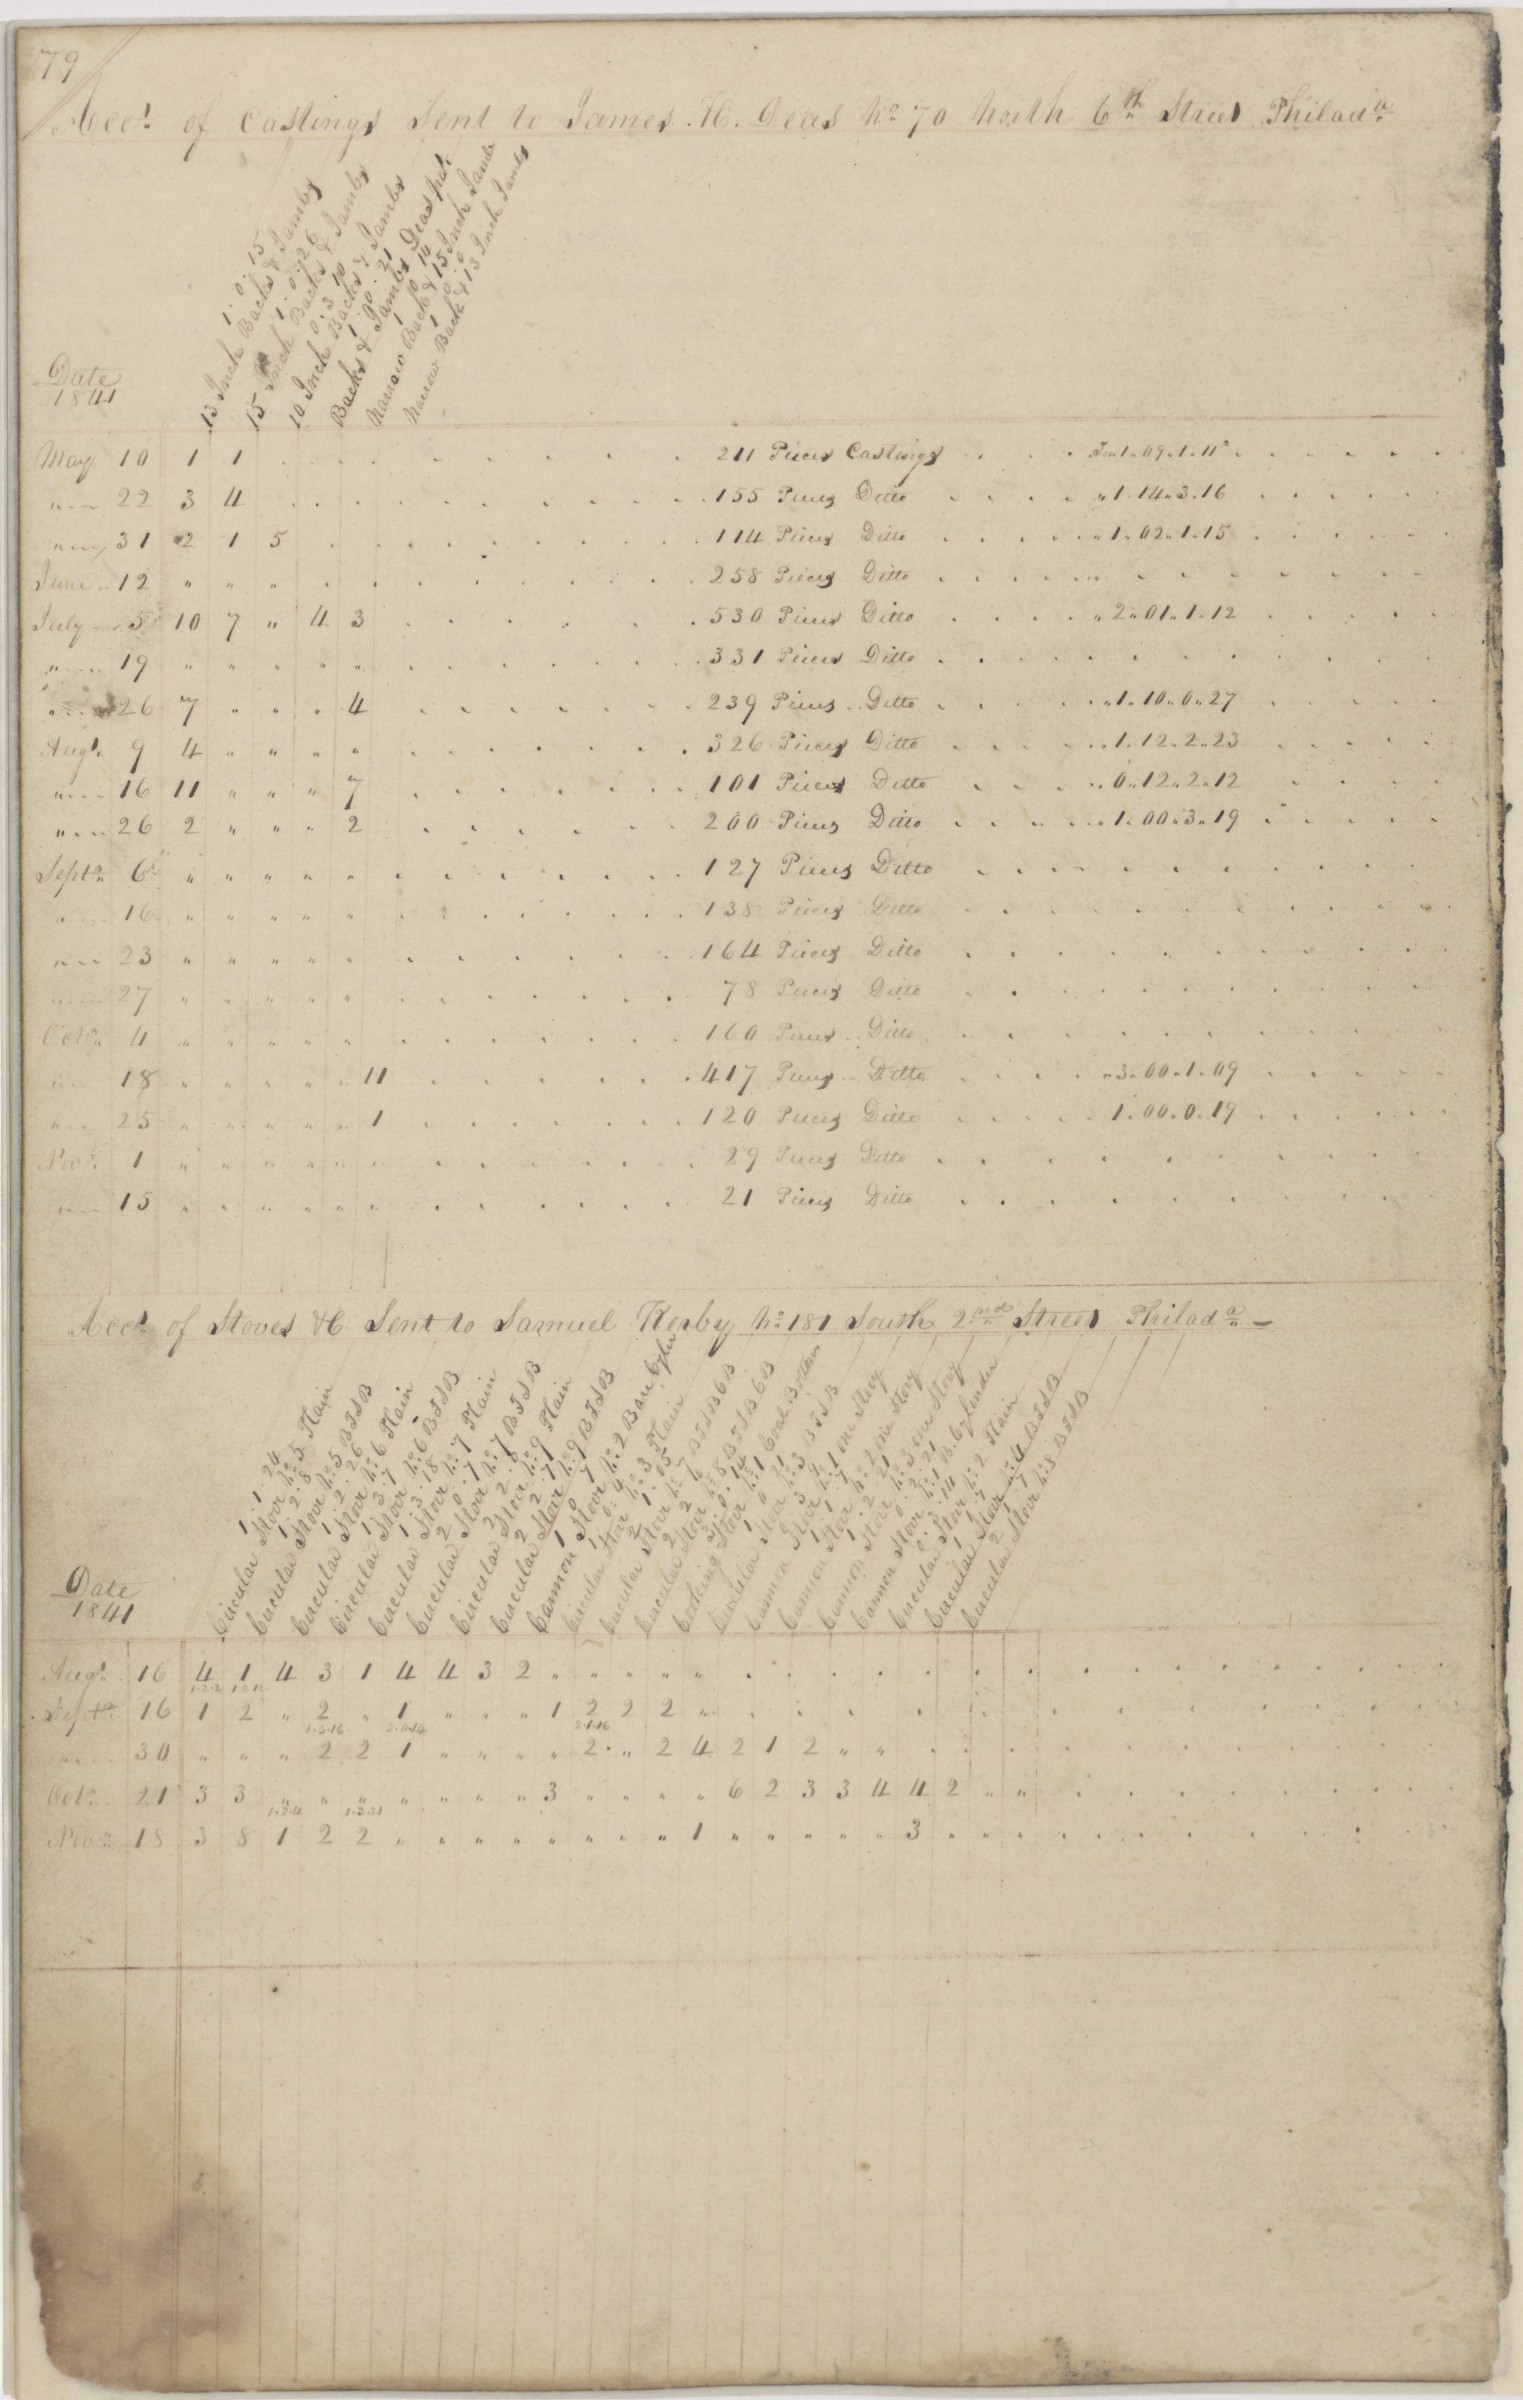 79
Acct. of Castings Sent to James. H. Deas No. 70 North 6th Street Philada.
1 . 0 . 15
13 Inch Backs & Jambs
1 . 0 . 26
15 Inch Backs & Jambs
0 . 3 . 10
10 Inch Backs & Jambs
1 . 0 . 21
Backs & Jambs Deas Pat.
1 . 0 . 14
Narrow Back & 15 Inch Jambs
1 . 0 . 0
Narrow Back & 13 Inch Jambs
Date
1841
May 10 1 1 . . . . 211 Pieces Castings . . . Ton 1 " 09 " 1 " 11
" 22 3 4 . . . . 155 Pieces Ditto . . . " 1 " 14 " 3 " 16
" 31 2 1 5 . . . . 114 Pieces Ditto . . . " 1 " 02 " 1 " 15
June 12 " " " . . . . 258 Pieces Ditto
July 5 10 7 " 4 3 . . . . 530 Pieces Ditto . . . " 2 " 01 " 1 " 12
" 19 " " " " " . . . . 331 Pieces Ditto
" 26 7 " " " 4 . . . . 239 Pieces Ditto . . . " 1 " 10 " 0 " 27
Augt. 9 4 " " " " . . . . 326 Pieces Ditto . . . " 1 " 12 " 2 " 23
" 16 11 " " " 7 . . . . 101 Pieces Ditto . . . " 0 " 12 " 2 " 12
" 26 2 " " " 2 . . . . 200 Pieces Ditto . . . " 1 " 00 " 3 " 19
Septr. 6 " " " " " . . . . 127 Pieces Ditto
" 16 " " " " " . . . . 138 Pieces Ditto
" 23 " " " " " . . . . 164 Pieces Ditto
" 27 " " " " " . . . . 78 Pieces Ditto
Octr. 4 " " " " " . . . . 160 Pieces Ditto
" 18 " " " " " 11 . . . . 417 Pieces Ditto . . . " 3 " 00 " 1 " 09
" 25 " " " " " 1 . . . . 120 Pieces Ditto . . . 1 " 00 " 0 " 19
Novr. 1 " " " " " " . . . . 29 Pieces Ditto
" 15 " " " " " " . . . . 21 Pieces Ditto
Acct. of Stoves &C Sent to Samuel Kerby No. 181 South 2nd Street Philada. –
1 . 1 . 24
Circular Stove No. 5 Plain
1 . 2 . 8
Circular Stove No. 5 BTSB
1 . 2 . 26
Circular Stove No. 6 Plain
1 . 3 . 7
Circular Stove No. 6 BTSB
1 . 3 . 18
Circular Stove No. 7 Plain
2 . 0 . 7
Circular Stove No. 7 BTSB
2 . 2 . 0
Circular Stove No. 9 Plain
2 . 2 . 7
Circular Stove No. 9 BTSB
1 . 0 . 7
Cannon Stove No. 2 Bare Cylin
Circular Stove No. 3 Plain
Circular Stove No. 7 BTSB6B
Circular Stove No. 8 BTSB6B
Cooking Stove No. 1 Coal Bottom
Circular Stove No. 3 BTSB
Cannon Stove No. 1 one Story
Cannon Stove No. 2 one Story
Cannon Stove No. 3 one Story
Cannon Stove No. 1 B. Cylinder
Circular Stove No. 2 Plain
Circular Stove No. 4 BTSB
Circular Stove No. 8 BTSB
Date
1841
Augt. 16 4 1 4 3 1 4 4 3 2 " " " " "
1-2-2
Septr. 16 1 2 " 2 " 1 " " " 1 2 2 2 "
1-3-16 2-0-14 2-1-16
" 30 " " " 2 2 1 " " " " 2 " 2 4 2 1 2 " "
Octr. 21 3 3 " " " " " " " 3 " " " " 6 2 3 3 4 4 2 " "
1-2-4 1-3-21
Novr. 18 3 8 1 2 2 " " " " " " " " 1 " " " " " 3 " "